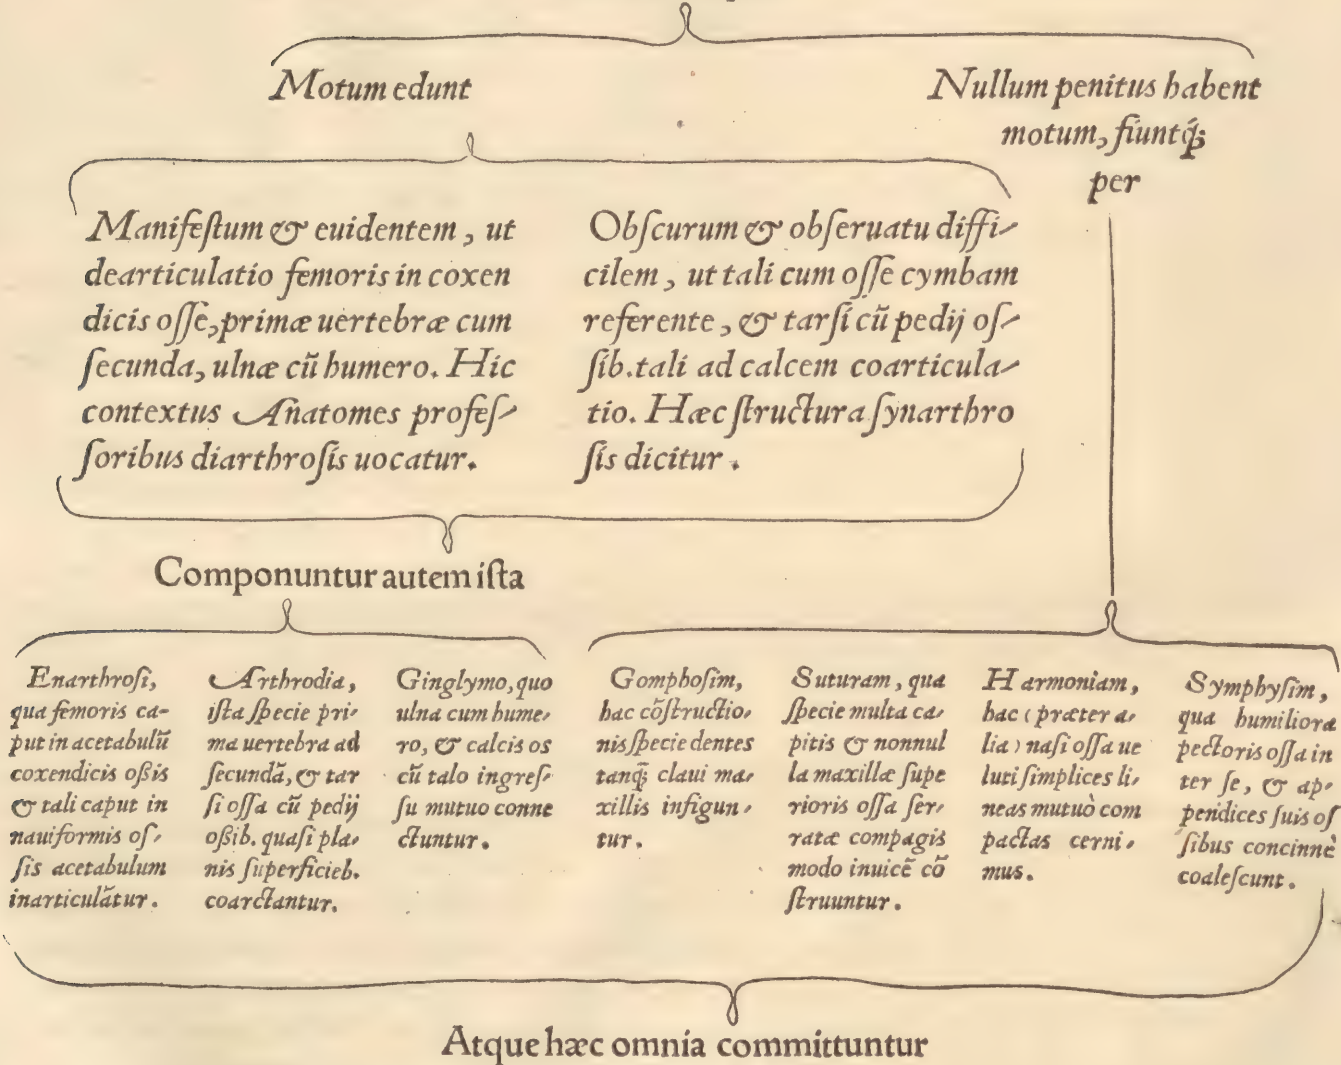 Motum edunt
Nullum penitus habent
motum, fiuntq́;
per
Manifeſtum & euidentem, ut
dearticulatio femoris in coxen
dicis oſſe, primæ uertebræ cum
ſecunda, ulnæ cũ humero. Hic
contextus Anatomes profeſ-
ſoribus diarthroſis uocatur.
Obſcurum & obſeruatu diffi-
cilem, ut tali cum oſſe cymbam
referente, & tarſi cũ pedij oſ-
ſib. tali ad calcem coarticula-
tio. Hæc ſtructura ſynarthro
ſis dicitur.
Componuntur autem iſta
Enarthroſi,
qua femoris ca-
put in acetabulũ
coxendicis oßis
& tali caput in
nauiformis oſ-
ſis acetabulum
inarticulãtur.
Arthrodia,
iſta ſpecie pri-
ma uertebra ad
ſecundã, & tar
ſi oſſa cũ pedij
oßib. quaſi pla-
nis ſuperficieb.
coarctantur.
Ginglymo, quo
ulna cum hume-
ro, & calcis os
cũ talo ingreſ-
ſu mutuo conne
ctuntur.
Gomphoſim,
hac cõſtructio-
nis ſpecie dentes
tanq́; claui ma-
xillis infigun-
tur.
Suturam, qua
ſpecie multa ca-
pitis & nonnul
la maxillæ ſupe
rioris oſſa ſer-
ratæ compagis
modo inuicẽ cõ
ſtruuntur.
Harmoniam,
hac (præter a-
lia) naſi oſſa ue
luti ſimplices li-
neas mutuò com
pactas cerni-
mus.
Symphyſim,
qua humiliora
pectoris oſſa in
ter ſe, & ap-
pendices ſuis oſ
ſibus concinnè
coaleſcunt.
Atque hæc omnia committuntur